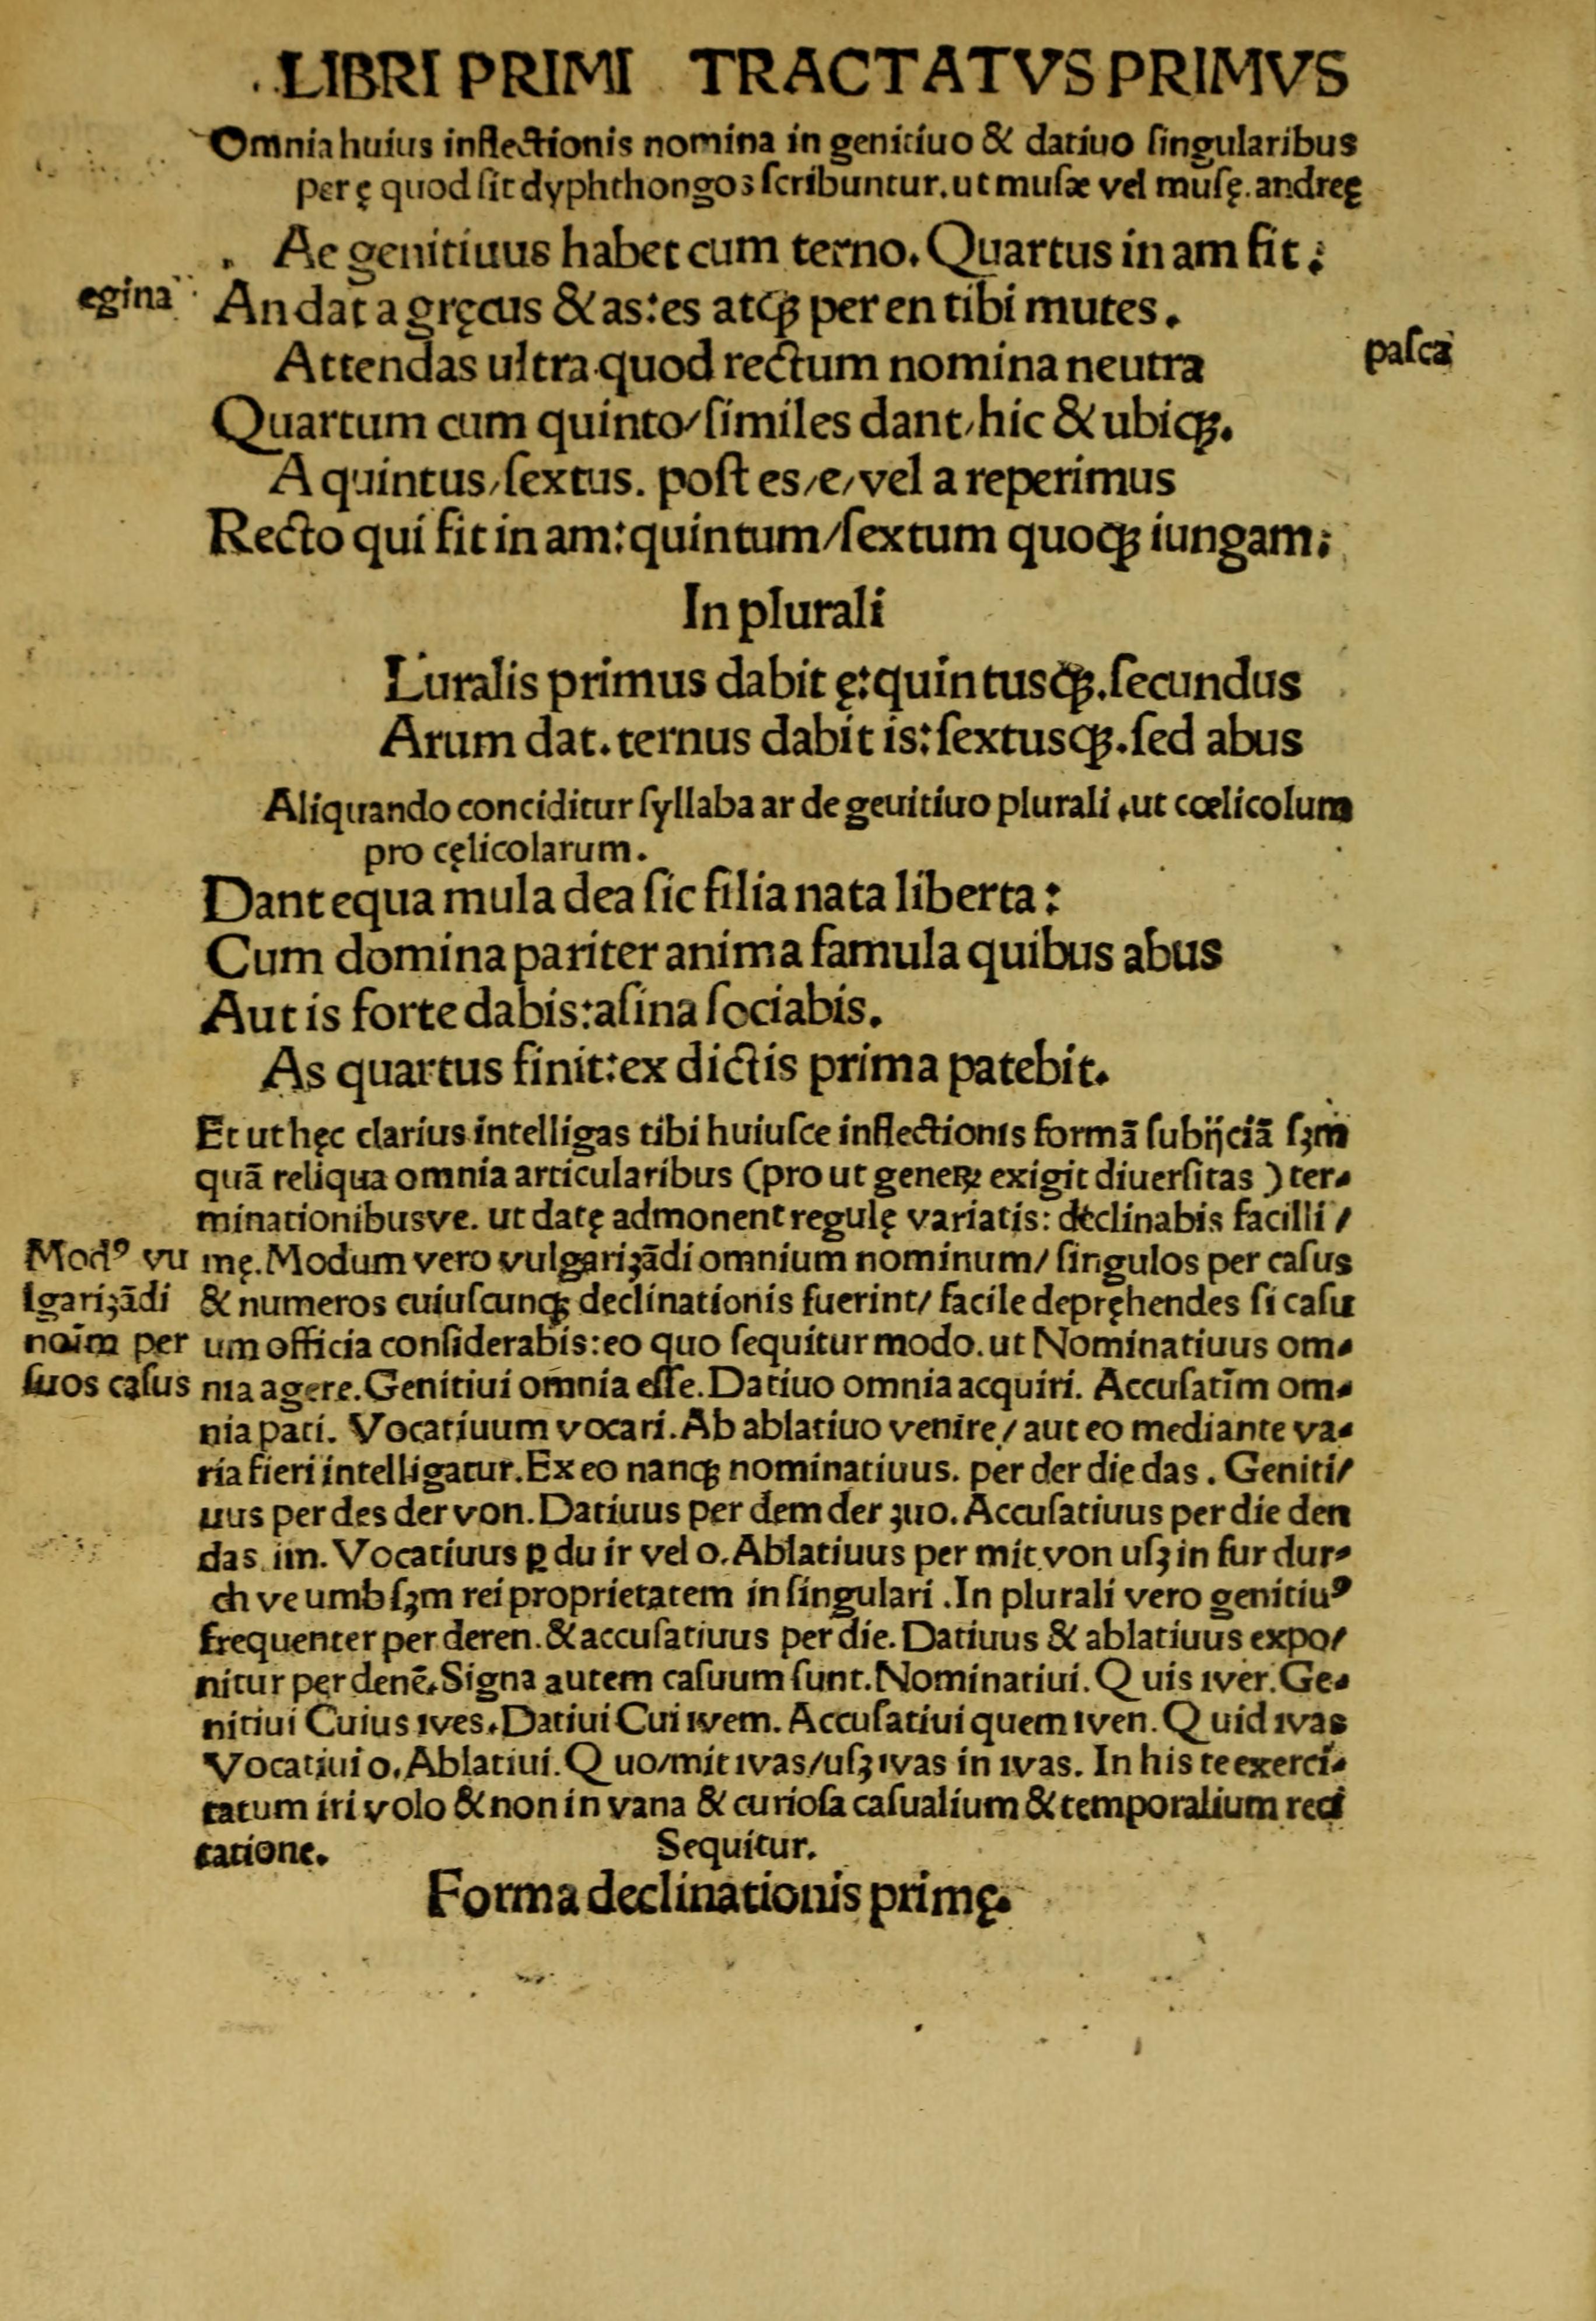 LIBRI PRIMI TRACTATVS PRIMVS
Omnia huius inflectionis nomina in genitiuo & datiuo ſingularibus
per ę quod ſit dyphthongos ſcribuntur. ut muſæ vel muſę. andreę
Ae genitiuus habet cum terno. Quartus in am fit:
egina
An dat a gręcus & as: es atqꝫ per en tibi mutes.
Attendas ultra quod rectum nomina neutra
paſca
Quartum cum quinto/ ſimiles dant/ hic & ubiqꝫ.
A quintus/ ſextus. poſt es/ e/ vel a reperimus
Recto qui fit in am: quintum/ ſextum quoqꝫ iungam:
In plurali
Luralis primus dabit ę: quintusqꝫ. ſecundus
Arum dat. ternus dabit is: ſextusqꝫ. ſed abus
Aliquando conciditur ſyllaba ar de geuitiuo plurali. ut cœlicolum
pro cęlicolarum.
Dant equa mula dea ſic filia nata liberta:
Cum domina pariter anima famula quibus abus
Aut is forte dabis: aſina ſociabis.
As quartus finit: ex dictis prima patebit.
Et ut hęc clarius intelligas tibi huiuſce inflectionis formā ſubijciā ſꝫm
quā reliqua omnia articularibus (pro ut geneꝝ exigit diuerſitas) ter-
minationibusve. ut datę admonent regulę variatis: declinabis facilli/
mę. Modum vero vulgariꝫādi omnium nominum/ ſingulos per caſus
& numeros cuiuſcunqꝫ declinationis fuerint/ facile depręhendes ſi caſu
um officia conſiderabis: eo quo ſequitur modo. ut Nominatiuus om-
nia agere. Genitiui omnia eſſe. Datiuo omnia acquiri. Accuſatīm om-
Modꝰ vu
lgariꝫādi
noīm per
ſuos caſus
nia pati. Vocatiuum vocari. Ab ablatiuo venire/ aut eo mediante va-
ria fieri intelligatur. Ex eo nanqꝫ nominatiuus. per der die das. Geniti/
uus per des der von. Datiuus per dem der ꝫuo. Accuſatiuus per die den
das im. Vocatiuus ꝑ du ir vel o. Ablatiuus per mit von uſꝫ in fur dur-
ch ve umb ſꝫm rei proprietatem in ſingulari. In plurali vero genitiuꝰ
frequenter per deren. & accuſatiuus per die. Datiuus & ablatiuus expo/
nitur per denē. Signa autem caſuum ſunt. Nominatiui. Quis wer. Ge-
nitiui Cuius wes. Datiui Cui wem. Accuſatiui quem wen. Quid was
Vocatiui o. Ablatiui. Quo/ mit was/ uſꝫ was in was. In his te exerci-
tatum iri volo & non in vana & curioſa caſualium & temporalium reci
tatione.
Sequitur.
Forma declinationis primę.